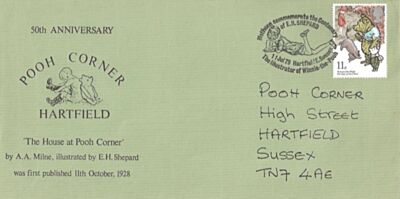 50th ANNIVERSARY
POOH CORNER
HARTFIELD
'The House at Pooh Corner'
by A.A. Milne, illustrated by E.H. Shepard
was first published 11th October, 1928
Methuen commemorate the Centenary
of E.H. SHEPARD
11 Jly 79 Hartfield E. Sussex
The Illustrator of Winnie-the-Pooh
11p
POOH CORNER
High Street
HARTFIELD
SUSSEX
TN7 4AE